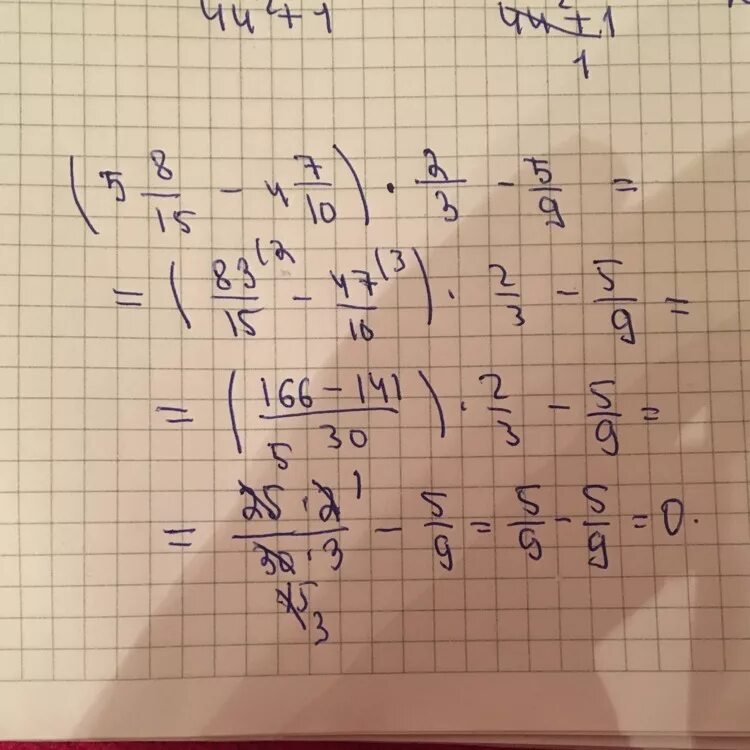 4y²+1 4y²+1
1
(5 8/15 - 4 7/10) · 2/3 - 5/9 =
= (83/15 (2 - 47/10 (3) · 2/3 - 5/9 =
= ((166-141)/30) · 2/3 - 5/9 =
5 1
= (25·2)/(30·3) - 5/9 = 5/9 - 5/9 = 0.
15
3